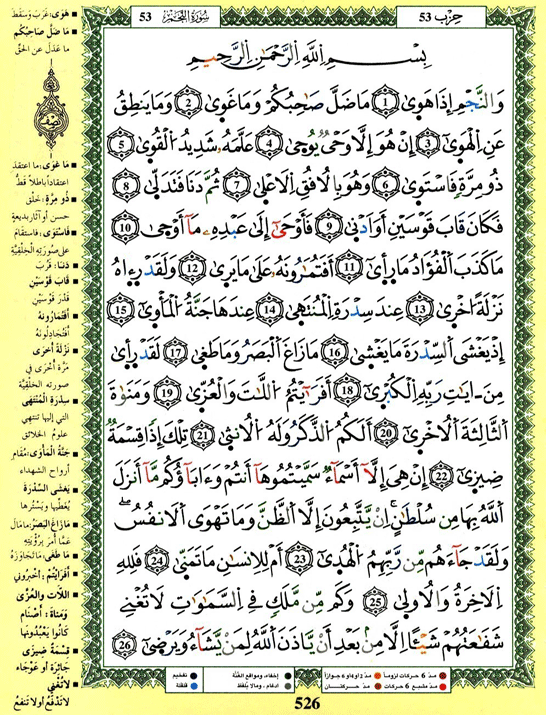 حِزْب 53
سُورَةُ النَّجْمِ 53
بِسْمِ اللَّهِ الرَّحْمَٰنِ الرَّحِيمِ
وَالنَّجْمِ إِذَا هَوَىٰ 1 مَا ضَلَّ صَاحِبُكُمْ وَمَا غَوَىٰ 2 وَمَا يَنطِقُ
عَنِ الْهَوَىٰ 3 إِنْ هُوَ إِلَّا وَحْيٌ يُوحَىٰ 4 عَلَّمَهُ شَدِيدُ الْقُوَىٰ 5
ذُو مِرَّةٍ فَاسْتَوَىٰ 6 وَهُوَ بِالُافُقِ الَاعْلَىٰ 7 ثُمَّ دَنَا فَتَدَلَّىٰ 8
فَكَانَ قَابَ قَوْسَيْنِ أَوَ ادْنَىٰ 9 فَأَوْحَىٰ إِلَىٰ عَبْدِهِ مَا أَوْحَىٰ 10
مَا كَذَبَ الْفُؤَادُ مَا رَأَىٰ 11 أَفَتُمَٰرُونَهُ عَلَىٰ مَا يَرَىٰ 12 وَلَقَدْ رَءَاهُ
نَزْلَةً اخْرَىٰ 13 عِندَ سِدْرَةِ الْمُنتَهَىٰ 14 عِندَهَا جَنَّةُ الْمَأْوَىٰ 15
إِذْ يَغْشَى السِّدْرَةَ مَا يَغْشَىٰ 16 مَا زَاغَ الْبَصَرُ وَمَا طَغَىٰ 17 لَقَدْ رَأَىٰ
مِنَ ايَٰتِ رَبِّهِ الْكُبْرَىٰ 18 أَفَرَٰٓيْتُمُ اللَّٰتَ وَالْعُزَّىٰ 19 وَمَنَوٰةَ
الثَّالِثَةَ الُاخْرَىٰ 20 أَلَكُمُ الذَّكَرُ وَلَهُ الُانثَىٰ 21 تِلْكَ إِذًا قِسْمَةٌ
ضِيزَىٰ 22 إِنْ هِيَ إِلَّا أَسْمَاءٌ سَمَّيْتُمُوهَا أَنتُمْ وَءَابَاؤُكُم مَّا أَنزَلَ
اللَّهُ بِهَا مِن سُلْطَٰنٍ إِنْ يَّتَّبِعُونَ إِلَّا الظَّنَّ وَمَا تَهْوَى الَانفُسُ
وَلَقَدْ جَاءَهُم مِّن رَّبِّهِمُ الْهُدَىٰ 23 أَمْ لِلِانسَٰنِ مَا تَمَنَّىٰ 24 فَلِلهِ
الَاخِرَةُ وَالُاولَىٰ 25 وَكَم مِّن مَّلَكٍ فِي السَّمَٰوَٰتِ لَا تُغْنِي
شَفَٰعَتُهُمْ شَيْـًٔا اِلَّا مِنۢ بَعْدِ أَنْ يَّاذَنَ اللَّهُ لِمَنْ يَّشَاءُ وَيَرْضَىٰ 26
هَوَىٰ: غَرَبَ وَسَقَطَ
مَا ضَلَّ صَاحِبُكُمْ
مَا عَدَلَ عَنِ الحَقِّ
نِصْف
مَا غَوَىٰ: مَا اعتقدَ
اعتقاداً باطلاً قطّ
ذُو مِرَّةٍ: خَلْقٍ
حسن أو آثارٍ بديعةٍ
فَاسْتَوَىٰ: فاستقامَ
على صُورَتِهِ الخِلْقِيَّةِ
دَنَا: قَرُبَ
قَابَ قَوْسَيْنِ
قَدْرَ قَوْسَيْنِ
أَفَتُمَارُونَهُ
أَفَتُجَادِلُونَهُ
نَزْلَةً أُخْرَى
مَرَّةً أُخْرَى في
صورتِهِ الخلقيّة
سِدْرَةِ الْمُنْتَهَى
التي إليها تنتهي
علومُ الخلائق
جَنَّةُ الْمَأْوَى: مُقامُ
أرواح الشهداء
يَغْشَى السِّدْرَةَ
يُغَطّيها ويَسْتُرها
مَا زَاغَ الْبَصَرُ: مَا مَالَ
عَمَّا أُمِرَ بِرُؤْيَتِهِ
مَا طَغَى: مَا تَجَاوَزَهُ
أَفَرَأَيْتُمْ: أخبروني
اللَّاتَ وَالْعُزَّى
وَمَنَاةَ: أَصْنَام
كَانُوا يَعْبُدُونَهَا
قِسْمَةٌ ضِيزَى
جَائِرَةٌ أو عَوْجَاء
لَا تُغْنِي
لَا تَدْفَعُ أو لا تنفعُ
مدّ 6 حركات لزوماً مدّ 2 أو 4 أو 6 جوازاً إخفاء، ومواقع الغُنَّة تفخيم
مدّ مشبع 6 حركات مدّ حركتـــان إدغام، ومالا يُلفَظ قلقلة
526